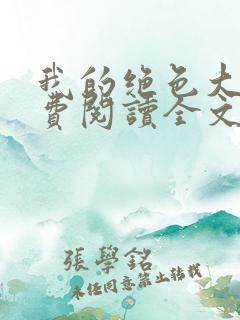 我的绝色大
费阅读全文
張學銘
未经同意禁止转载